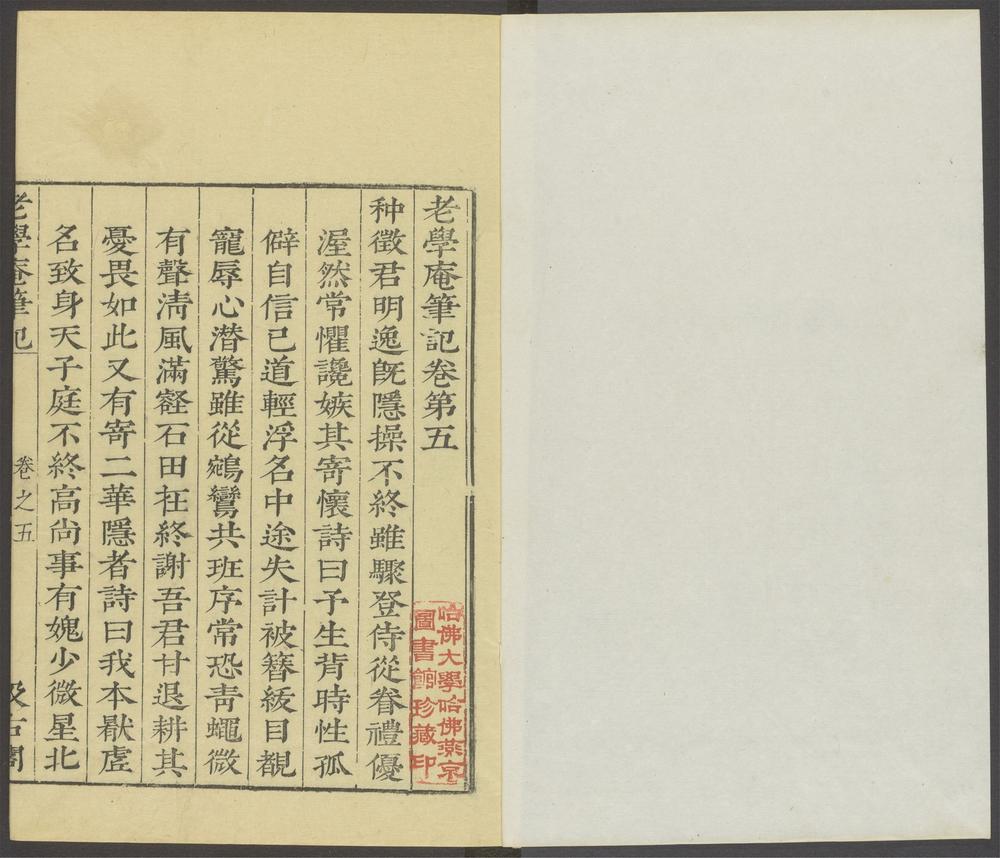 老學庵筆記卷第五
種徵君明逸旣隱操不終雖驟登侍從眷禮優
渥然常懼讒嫉其寄懷詩曰予生背時性孤
僻自信已道輕浮名中途失計被簪紱目覩
寵辱心潜驚雖從鵷鸞共班序常恐青蠅微
有聲清風滿壑石田在終謝吾君甘退耕其
憂畏如此又有寄二華隱者詩曰我本厭虛
名致身天子庭不終高尚事有媿少微星北
老學庵筆記
卷之五
汲古閣
哈佛大學哈佛燕京
圖書館珍藏印